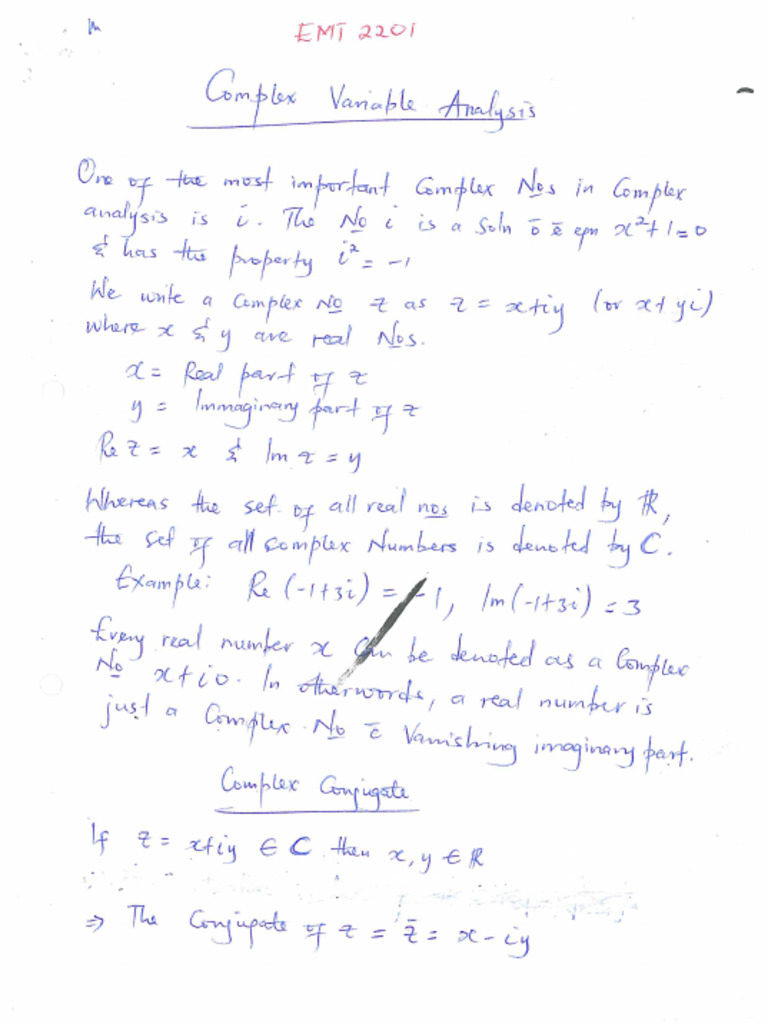 EMT 2201
Complex Variable Analysis
One of the most important Complex Nos in Complex
analysis is i. The No i is a Soln ō ē eqn x²+1=0
& has the property i² = -1
We write a Complex No z as z = x+iy (or x+yi)
where x & y are real Nos.
x = Real part of z
y = Immaginary part of z
Re z = x & Im z = y
Whereas the set of all real nos is denoted by ℝ,
the set of all complex Numbers is denoted by C.
Example: Re (-1+3i) = -1, Im(-1+3i) = 3
Every real number x Can be denoted as a Complex
No x+i0. In otherwords, a real number is
just a Complex No c̄ Vanishing imaginary part.
Complex Conjugate
If z = x+iy ∈ C then x, y ∈ ℝ
⇒ The Conjugate of z = z̄ = x-iy